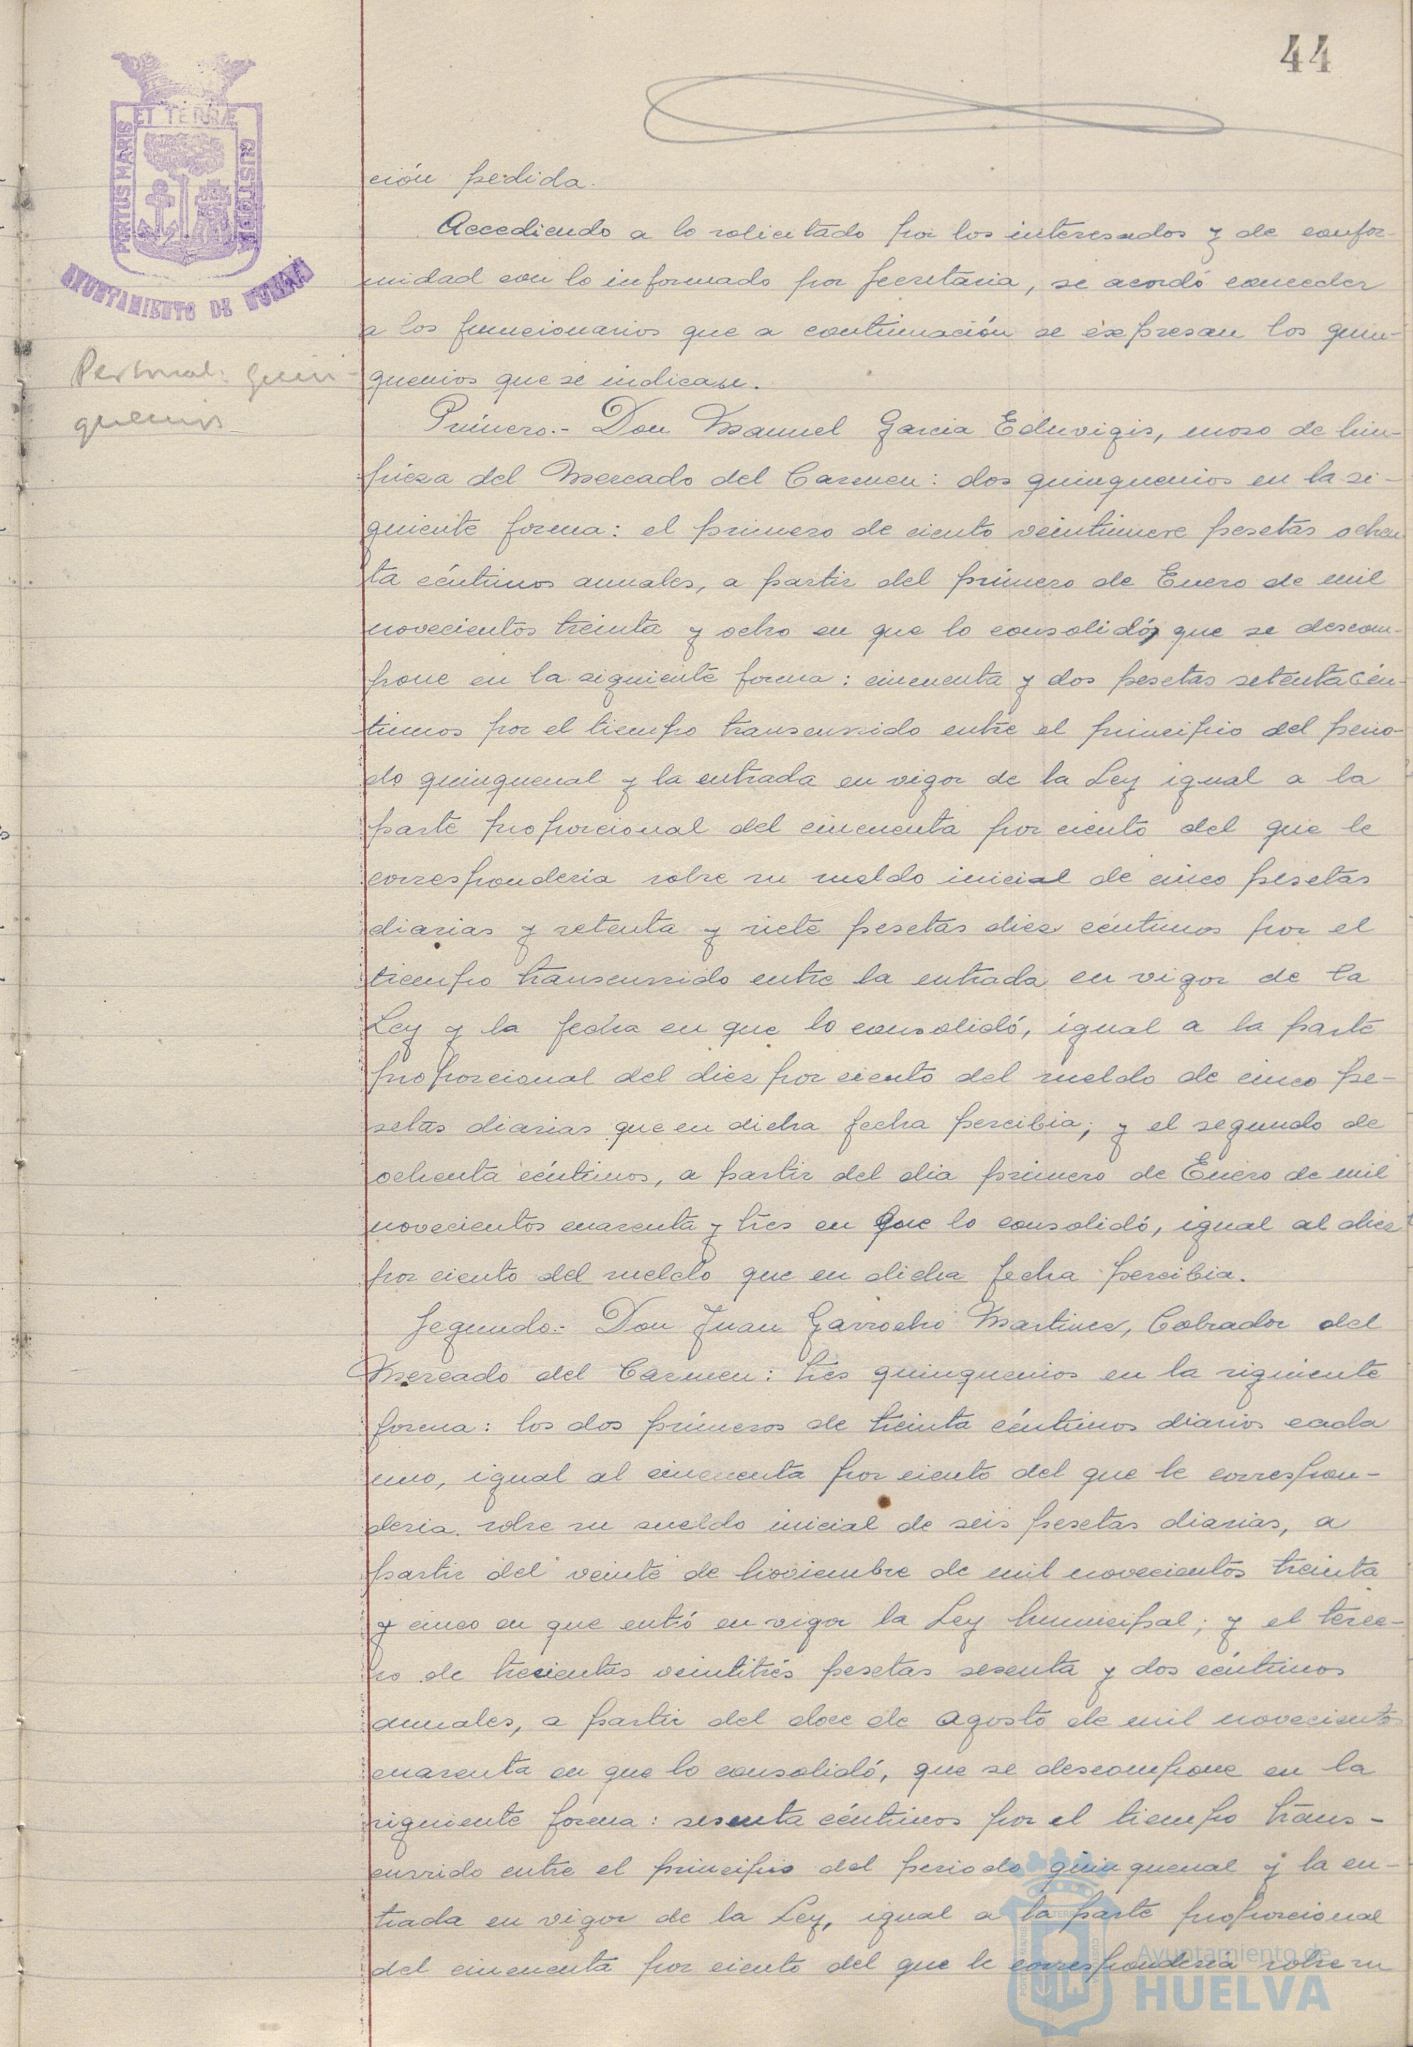 44
PORTUS MARIS
ET TERRÆ
CUSTODIA
AYUNTAMIENTO DE HUELVA
Personal: Quin-
quenios
ción pedida.
Accediendo a lo solicitado por los interesados y de confor-
midad con lo informado por Secretaria, se acordó conceder
a los funcionarios que a continuación se expresan los quin-
quenios que se indican.
Primero.- Don Manuel Garcia Eduvigis, moso de lim-
pieza del Mercado del Carmen: dos quinquenios en la si-
guiente forma: el primero de ciento veintinueve pesetas ochen
ta céntimos anuales, a partir del primero de Enero de mil
novecientos treinta y ocho en que lo consolidó, que se descom-
pone en la siguiente forma: cincuenta y dos pesetas setenta cén-
timos por el tiempo transcurrido entre el principio del perio-
do quinquenal y la entrada en vigor de la Ley igual a la
parte proporcional del cincuenta por ciento del que le
corresponderia sobre su sueldo inicial de cinco pesetas
diarias y setenta y siete pesetas diez céntimos por el
tiempo transcurrido entre la entrada en vigor de la
Ley y la fecha en que lo consolidó, igual a la parte
proporcional del diez por ciento del sueldo de cinco pe-
setas diarias que en dicha fecha percibia; y el segundo de
ochenta céntimos, a partir del dia primero de Enero de mil
novecientos cuarenta y tres en que lo consolidó, igual al diez
por ciento del sueldo que en dicha fecha percibia.
Segundo.- Don Juan Garrocho Martinez, Cobrador del
Mercado del Carmen: tres quinquenios en la siguiente
forma: los dos primeros de treinta céntimos diarios cada
uno, igual al cincuenta por ciento del que le correspon-
deria sobre su sueldo inicial de seis pesetas diarias, a
partir del veinte de Noviembre de mil novecientos treinta
y cinco en que entró en vigor la Ley Municipal; y el terce-
ro de trecientas veintitrés pesetas sesenta y dos céntimos
anuales, a partir del doce de Agosto de mil novecientos
cuarenta en que lo consolidó, que se descompone en la
siguiente forma: sesenta céntimos por el tiempo trans-
currido entre el principio del periodo quinquenal y la en-
trada en vigor de la Ley, igual a la parte proporcional
del cincuenta por ciento del que le corresponderia sobre su
Ayuntamiento de
HUELVA